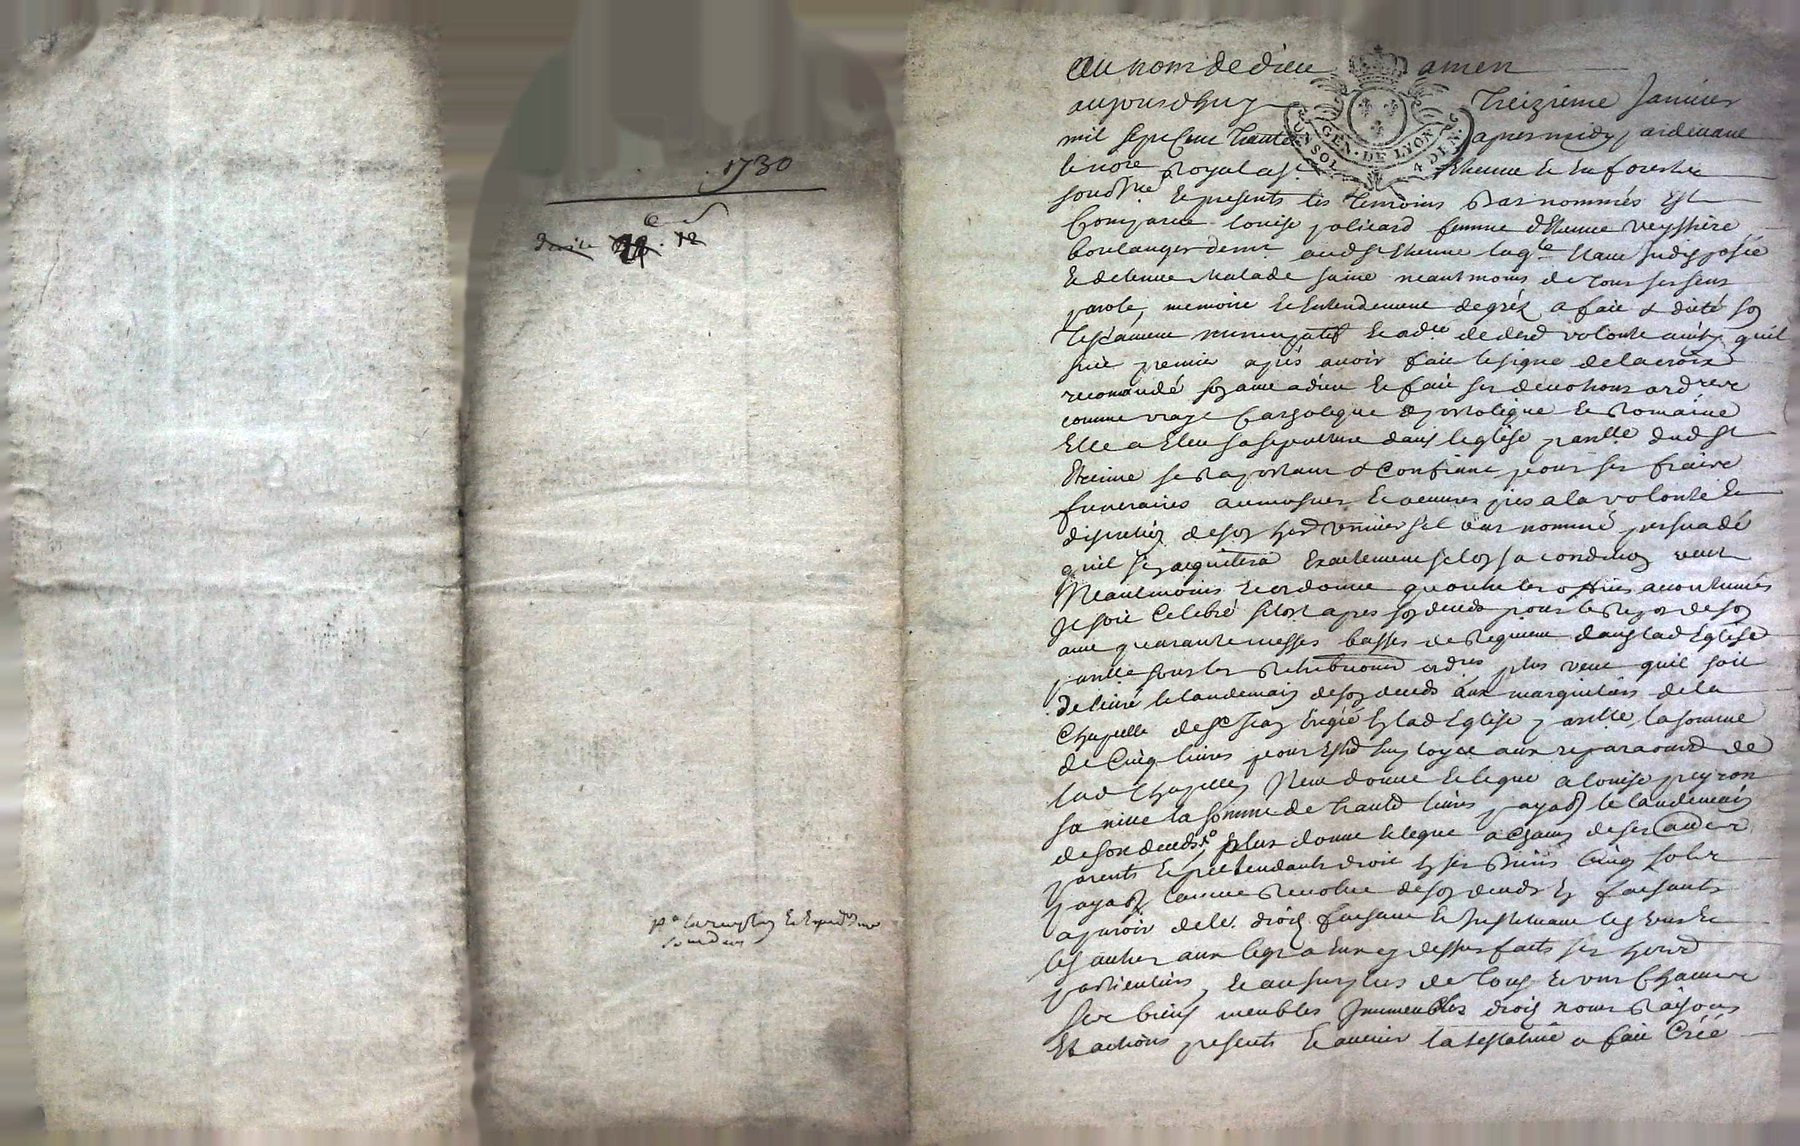 1730
12
Au nom de dieu amen
aujourdhuy treizieme Janvier
mil sept cent trante apres midy pardevant
le nore Royal a St Etienne le en forests
soubsne et presents les temoins bas nommés est
Comparue louise policard femme dEtienne veyssiere
boulanger demt audSt Etienne laqle etant Indisposée
et detenue malade saine neantmoins de tous ses sens
parole, memoire et entendement de gréz a fait & dicté son
Testament nuncupatif et ordre de derre volonté ainsy quil
suit premier apres avoir fait le signe de la croix
recomandé son ame a dieu et fait ses devotions ordres
comme vraye Catholique apostolique et Romaine
Elle a Eleu sa sepulture dans leglise parlle dud St
Etienne se raportant & confiant pour ses fraix
funeraires aumosnes et oeuvres pies a la volonté et
discretion de son herr universel bas nommé persuadé
quil sen aquitera Exactement selon sa condition veut
Neantmoins et ordonne quoutre les offices accoutumés
Il soit Celebré sitost apres son deceds pour le repos de son
ame quarante messes basses de Requiem dans lad Eglise
parlle sous les retributions ordres plus veut quil soit
delivré le landemain de son deceds aux marguilliers de la
Chapelle de St Jean Erigée en lad Eglise parlle, la somme
de Cinq livres pour Estre Employée aux reparaons de
lad Chapelle, Item donne et legue a louise peyron
sa niece la somme de trante livres payable le landemain
de son deceds, plus donne et legue a chacun de ses autres
parents et pretendants droit en ses biens Cinq sols
payables lannée revolue de son deceds en faisants
aparoir de le. droit faisant et Instituant les uns et
les autres aux legs a eux cy dessus faits ses herrs
particuliers, et au surplus de tous et uns Chacuns
ses biens meubles Immeubles droits noms raisons
et actions presents et avenir la testatrice a fait Créé